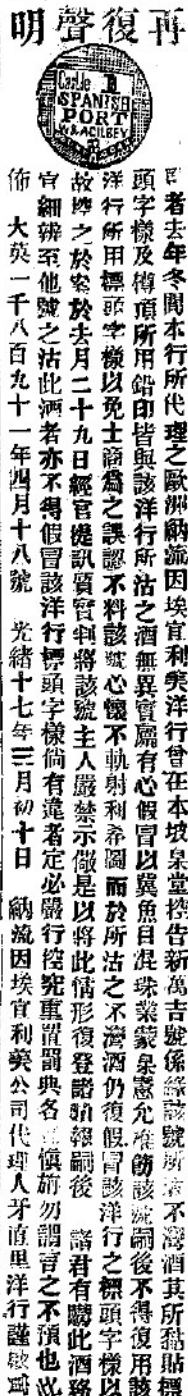 再復聲明
Castle B
SPANISH
PORT
W & A GILBEY
者去年冬間本行所代理之歐洲納流因埃官利美洋行曾在本坡臬堂控告新萬吉號係緣該號所沽不灣酒其所黏貼標
頭字樣及樽頂所用鉛印皆與該洋行所沽之酒無異實屬有心假冒以冀魚目混珠業蒙臬憲允准飭該號嗣後不得復用該
洋行所用標頭字樣以免士商為之誤認不料該號心懷不軌射利希圖而於所沽之不灣酒仍復假冒該洋行之標頭字樣以
故控之於案於去月二十九日經官提訊質實判將該號主人嚴禁示儆是以將此情形復登諸報嗣後 諸君有購此酒務
宜細辨至他號之沽此酒者亦不得假冒該洋行標頭字樣倘有違者定必嚴行控究重置罰典各宜慎旃勿謂言之不預也此
佈 大英一千八百九十一年四月十八號 光緒十七年三月初十日 納流因埃官利美公司代理人牙直里洋行謹啟